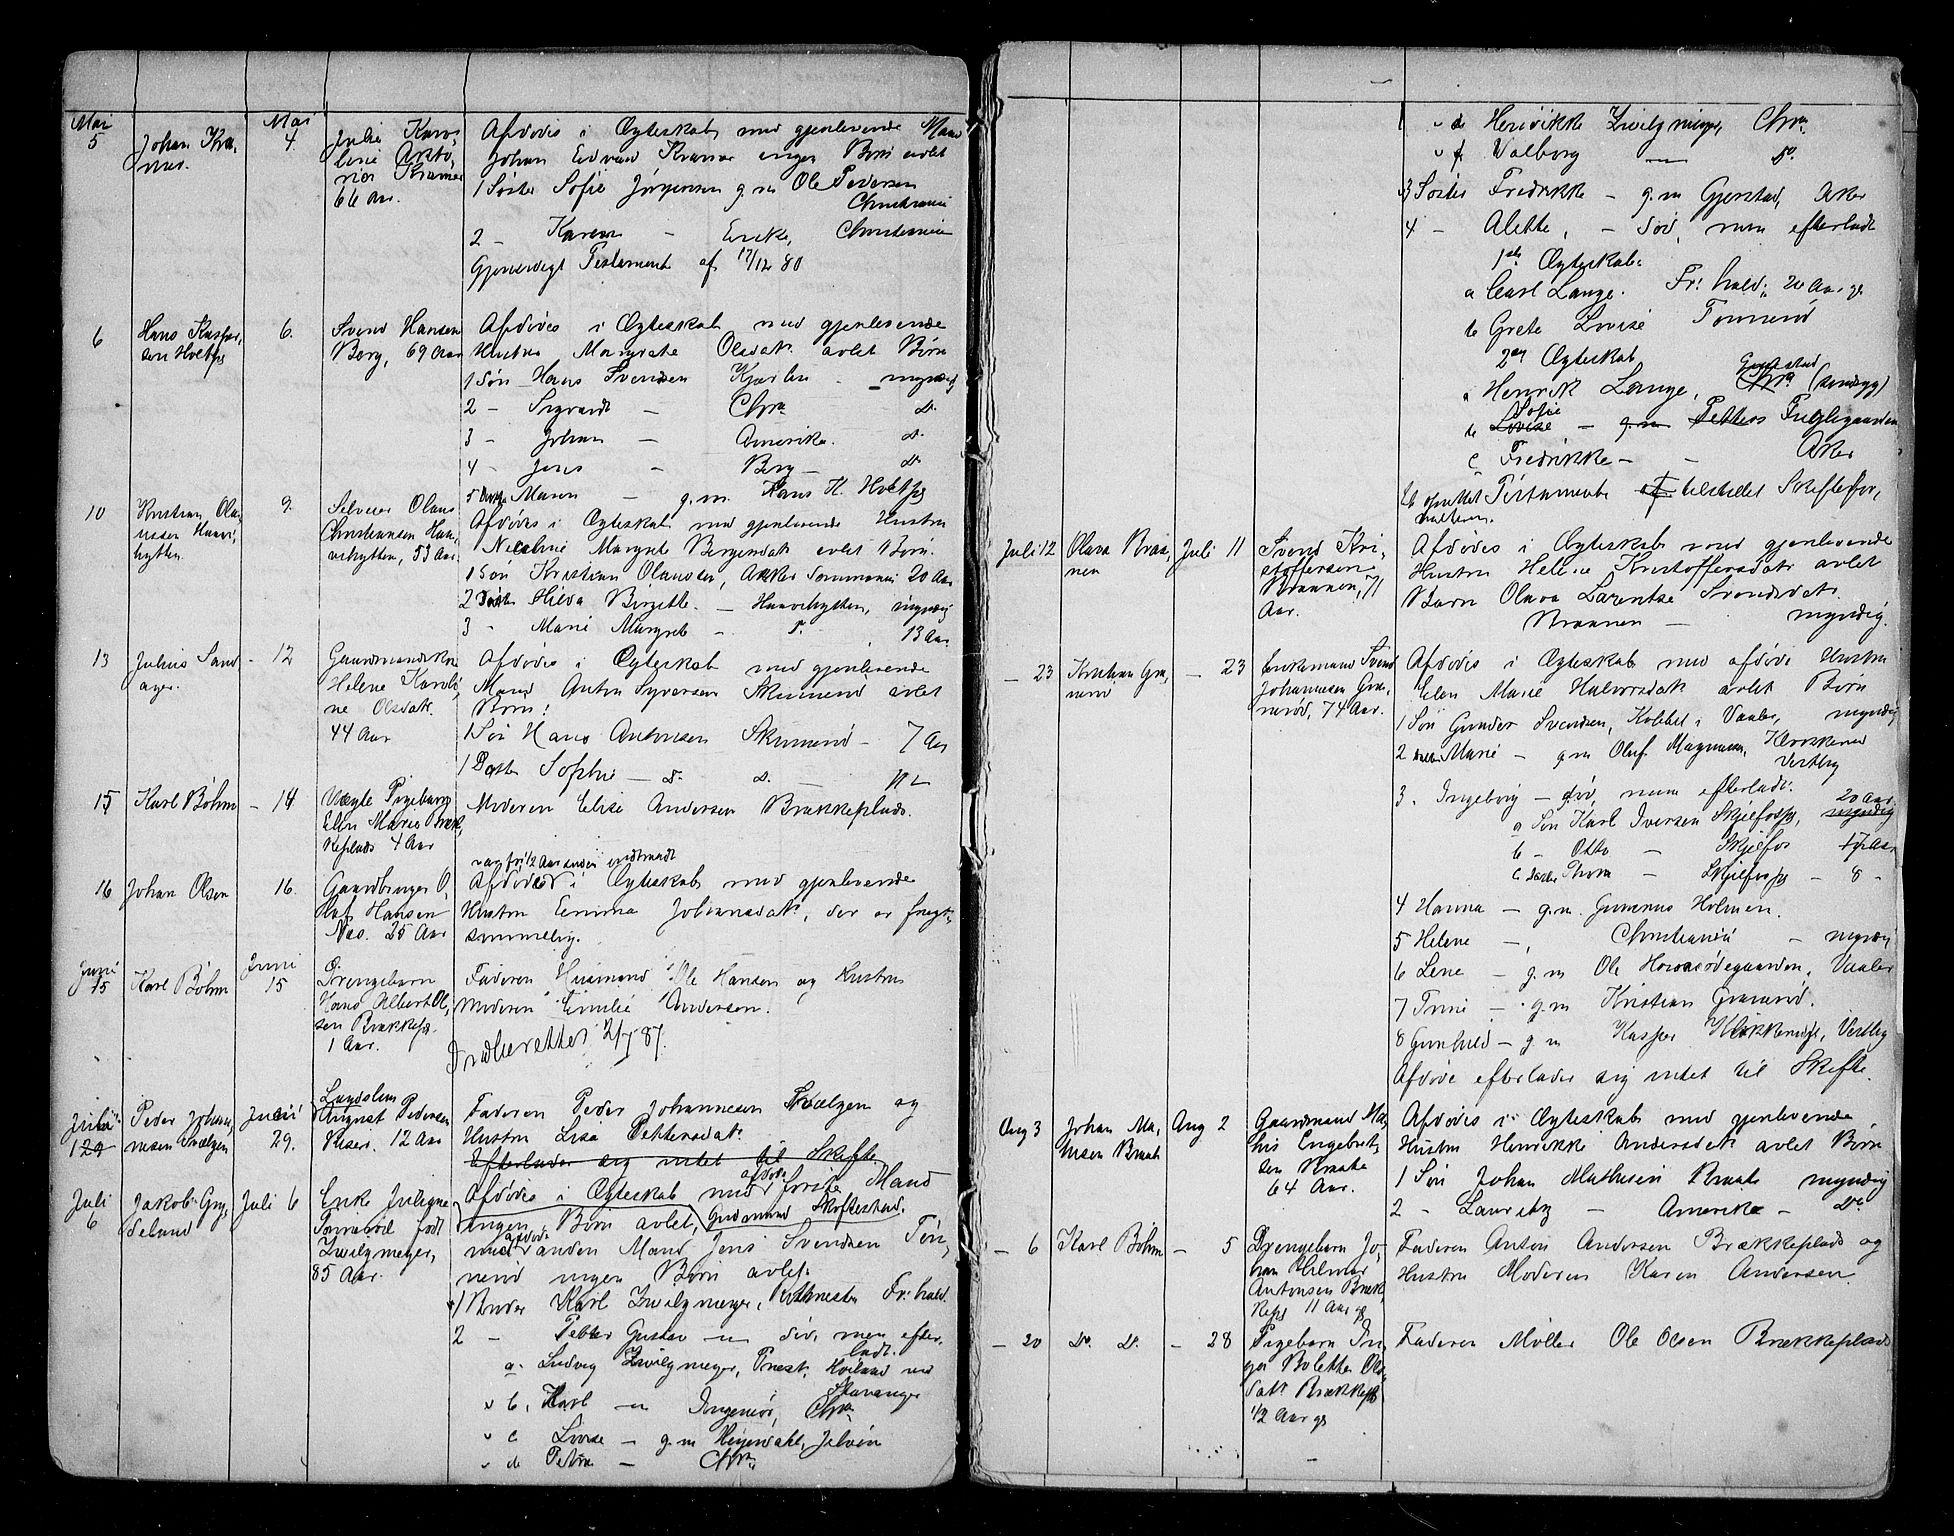 Mai
5
Johan Kra-
mer.
Mai
4
Julie Karo-
line Anto-
nie Kramer
66 Aar.
Afdødes i Ægteskab med gjenlevende Mand
Johan Edvard Kramer ingen Børn avlet
1 Søster Sofie Jørgensen g.m Ole Pedersen
Christiania
2 – Karen – Christiania
Gjensidigt Testament af 17/12 80
6
Hans Kasper-
sen Holtpg
6.
Svend Hansen
Berg, 69 Aar
Afdødes i Ægteskab med gjenlevende
Hustru Margrete Olsdatr avlet Børn
1 Søn Hans Svendsen – myndig
2 – Chra Do
3 – Johan – Amerika. Do
4 – Jens – Berg – Do
5 Datter Maren – g.m. Hans K. Holtpg
10
Kristian Ola-
ussen
hytten.
9.
Olaus
Christiansen
hytten, 53 Aar.
Afdødes i Ægteskab med gjenlevende Hustru
Nicoline Margret Børn.
1 Søn Kristian Olaussen, 20 Aar
2 Datter Hilda – myndig
3 – Marie Margret – Do 13 Aar
13
Julius Sand-
ager.
– 12
Gaardmandskone
Helene Karoli-
ne Olsdatr.
44 Aar
Afdødes i Ægteskab med gjenlevende
Mand Anton Syversen avlet
Børn:
1 Søn Hans Antonsen – 7 Aar
1 Datter Sophie – Do Do –
15
Karl Bøhm
– 14
Uægte Pigebarn
Elen Marie Bræk-
keplads 4 Aar
Moderen Elise Andersen Brækkeplads.
16
Johan Olsen
16.
Gaardbruger O-
laf Hansen
Næs. 25 Aar
Afdøde i Ægteskab med gjenlevende
Hustru Emma Johannsdatr, der er frugt-
sommelig.
Juni
15
Karl Bøhm
Juni
15
Drengebarn
Hans Albert Ol-
sen Brækkepl.
1 Aar.
Faderen Husmand Ole Hansen og Hustru
Moderen Emilie Andersen.
Indberettet 2/7 87.
Juli
129
Peder Johan-
nesen
Juni
29.
August Pedersen
12 Aar
Faderen Peder Johannesen og
Hustru Lisa Pettersdatr
Efterlader sig intet til Skifte.
Juli
6
Jakob Gry-
Juli 6
Enke Juliane
født
Zwilgmeyer,
85 Aar.
Afdødes i Ægteskab med afdøde første Mand
ingen Børn avlet, Gudmund Skoftestad.
med afdøde anden Mand Jens Svendsen Tøn-
nerød ingen Børn avlet.
1 Broder Karl Zwilgmeyer, Frhald.
2 – Petter Gustav – død, men efter-
ladt.
a. Ludvig Zwilgmeyer, Prest, ved
Stavanger
b. Karl – Ingeniør, Chra
c Lovise – g.m Heyerdahl, Jeløen
d Petra – Chra
d Henrikke Zwilgmeyer, Chra
f. Valborg – Do.
3 Søster Fredrikke – g.m Gjerstad, Aker
4 – Alette, – død, men efterladt
1ste Ægteskab:
a Carl Lange. Fr:hald; 20 Aar gl
b Grete Lovise Tønnerød
2et Ægteskab
a Henrik Lange, Chra (sindsyg)
b Lovise Sofie – g.m Petters
c Fredrikke – Aker
Et oprettet Testamente tilstillet Skiftefor-
valteren.
Juli 12
Olava Braa-
nen
Juli 11
Svend Kri-
stoffersen
Braanen, 71
Aar.
Afdødes i Ægteskab med gjenlevende
Hustru Helene Kristoffersdatr avlet
Barn Olava Larentse Svendsdatr.
Braanen – myndig.
– 23
Kristian Gra-
nerød
– 23
Enkemand Svend
Johannesen Gra-
nerød, 74 Aar.
Afdødes i Ægteskab med afdøde Hustru
Elen Marie Halvorsdatr avlet Børn
1 Søn Gunder Svendsen, i Vaaler, myndig
2 Datter Marie – g.m Oluf Magnusen,
Vestby
3. Ingeborg – død, men efterladt.
a Søn Karl Iversen 20 Aar
myndig
b – Otto – 17 Aar
c Datter Thora – 8 –
4 Hanna – g.m. Gunerius Holmen.
5 Helene –, Christiania – myndig
6 Lene – g.m Ole Vaaler
7 Trine – g.m Kristian Granerød.
8 Gunhild – g.m Kasper Vestby
Afdøde efterlader sig intet til Skifte.
Aug 3
Johan Ma-
thisen Braate
Aug 2
Gaardmand Mat-
his Engebret-
sen Braate
64 Aar.
Afdødes i Ægteskab med gjenlevende
Hustru Henrikke Andersdatr avlet Børn
1 Søn Johan Mathisen Braate myndig
2 – Lauritz – Amerika – Do
– 6
Karl Bøhm
– 5
Drengebarn Jo-
han Hilmar
Antonsen Bræk-
kepl 11 Aar gl
Faderen Anton Andersen Brækkeplads og
Hustru Moderen Karen Andersen.
– 20
Do. Do.
– 28
Pigebarn In-
ga Bolette Ols-
datr Brækkepl
1/2 Aar gl
Faderen Møller Ole Olsen Brækkeplads